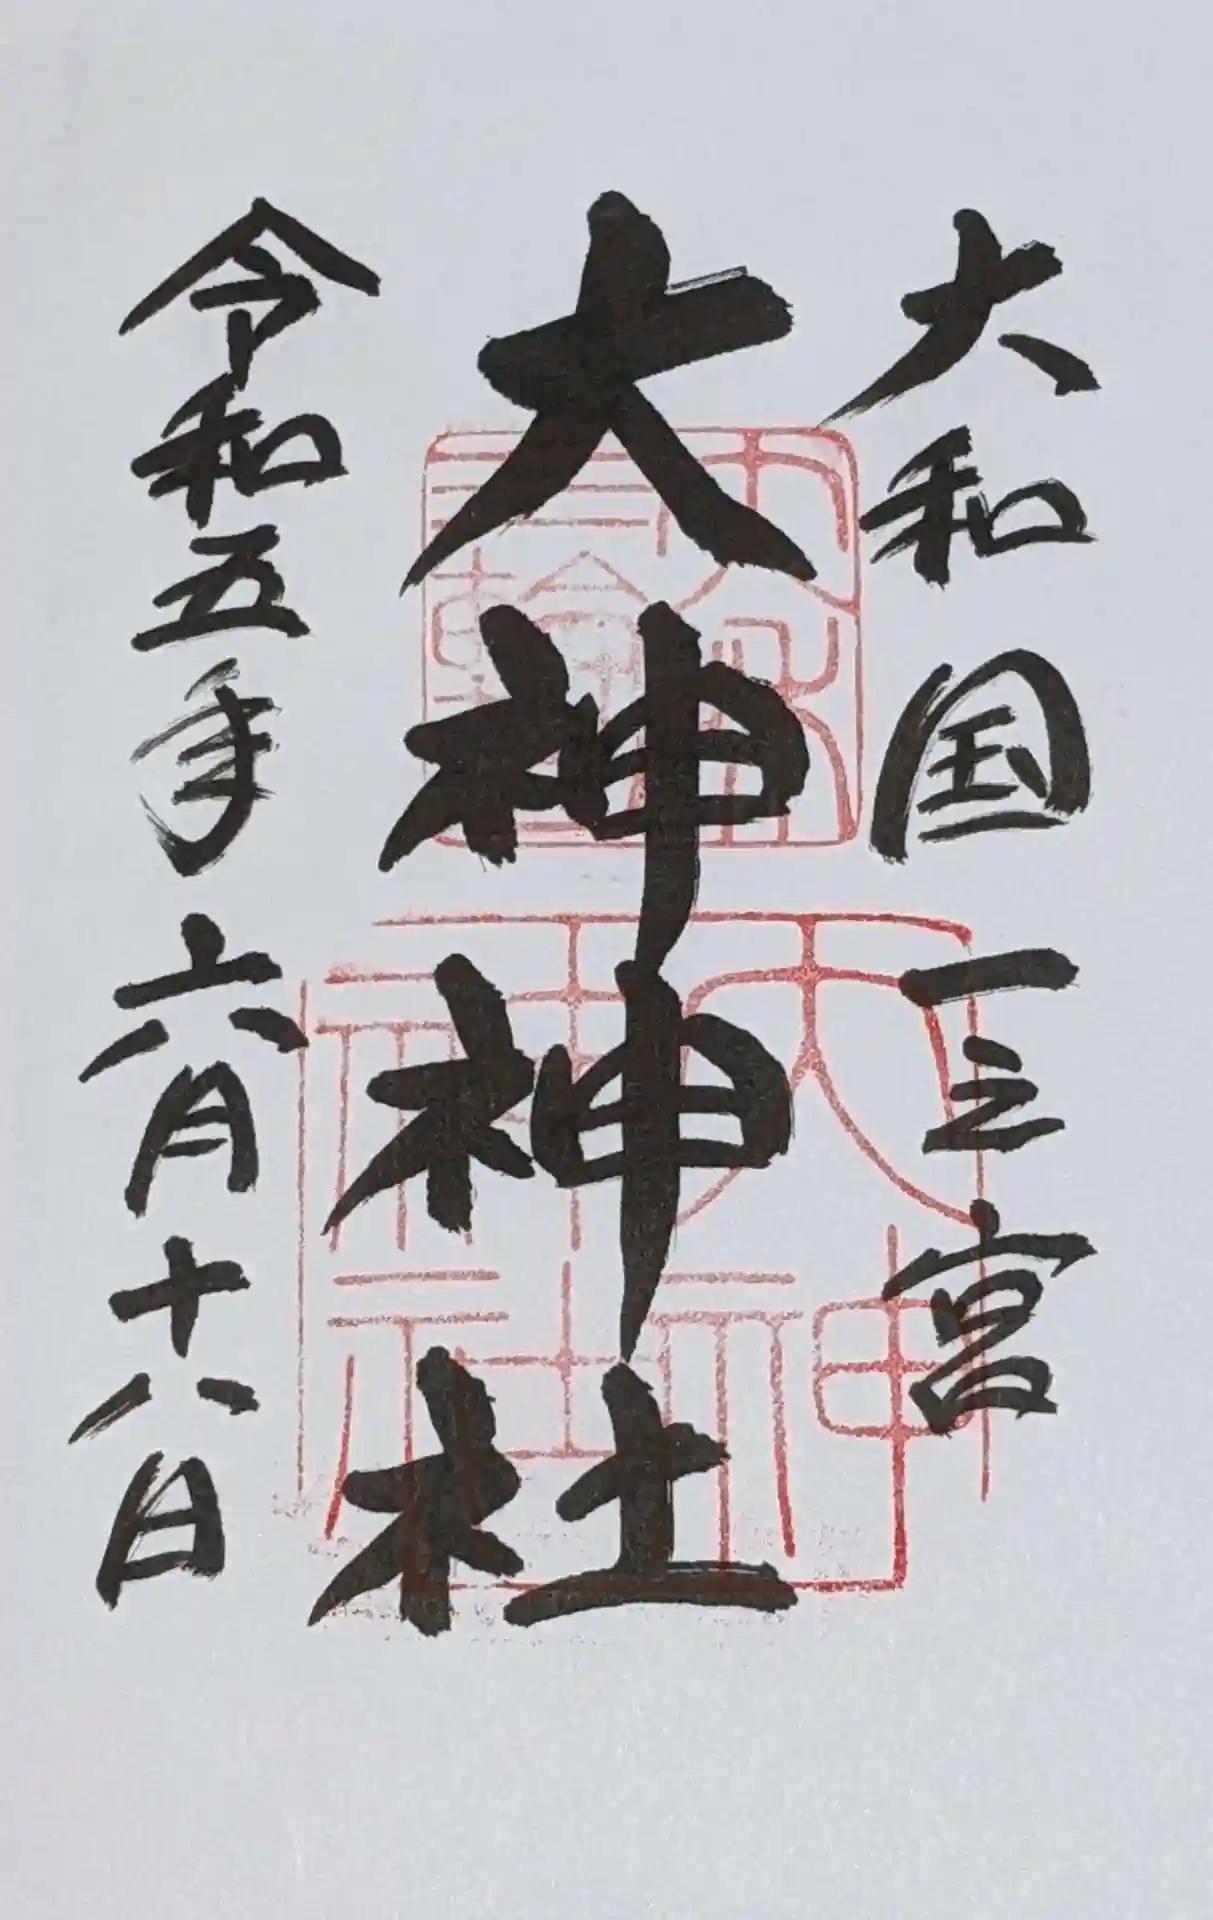 大和国一之宮
大神神社
令和五年六月十八日
大神神社